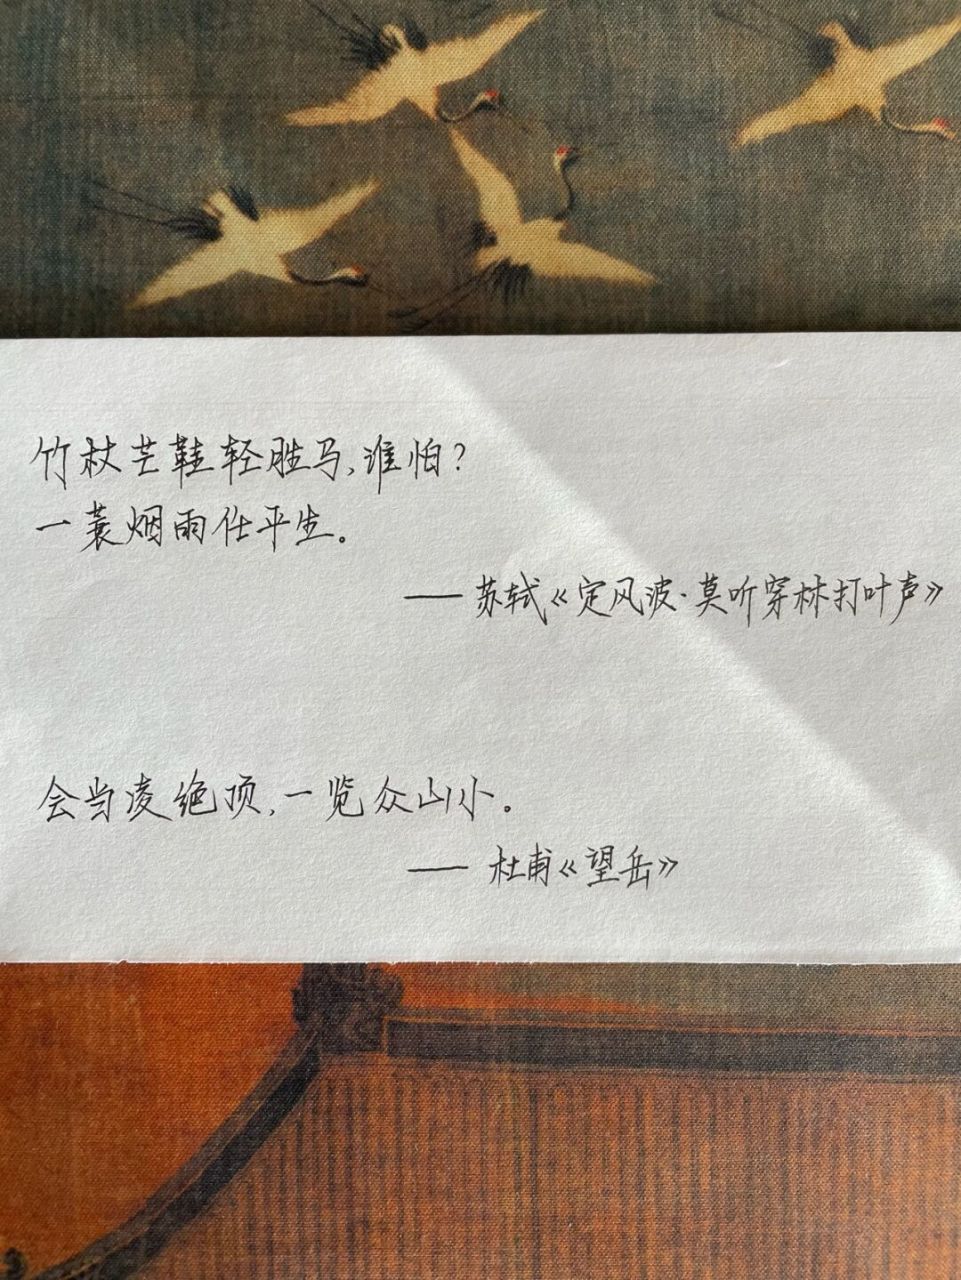 竹杖芒鞋轻胜马,谁怕?
一蓑烟雨任平生。
——苏轼《定风波·莫听穿林打叶声》
会当凌绝顶,一览众山小。
——杜甫《望岳》